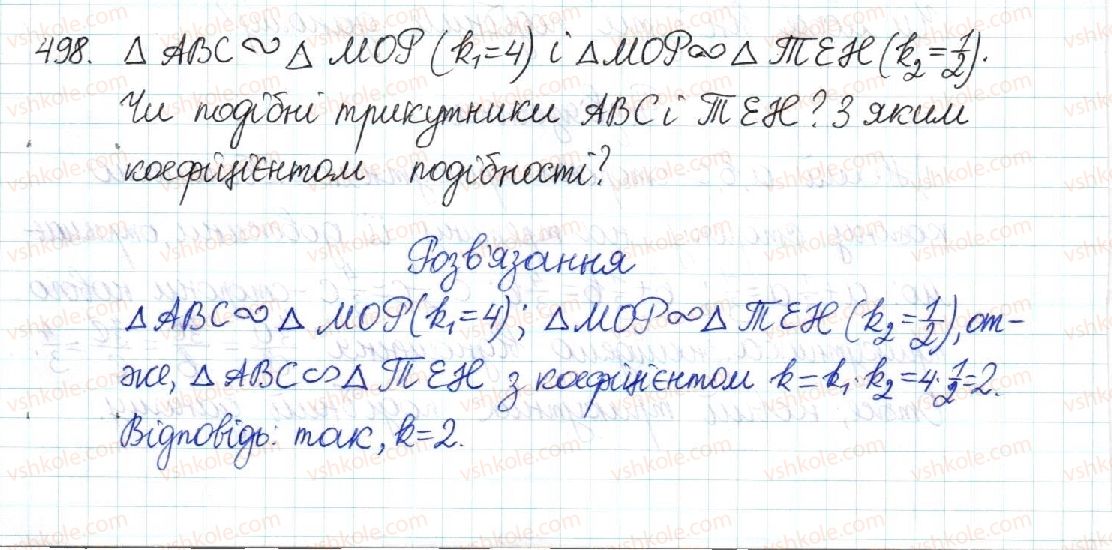 498. △ ABC ∽ △ MOP (k₁=4) і △MOP ∽ △ TEH (k₂=1/2).
Чи подібні трикутники ABC і TEH? З яким
коефіцієнтом подібності?
Розв'язання
△ ABC ∽ △ MOP (k₁=4); △MOP ∽ △ TEH (k₂=1/2), от-
же, △ ABC ∽ △ TEH з коефіцієнтом k=k₁·k₂=4·1/2=2.
Відповідь: так, k=2.